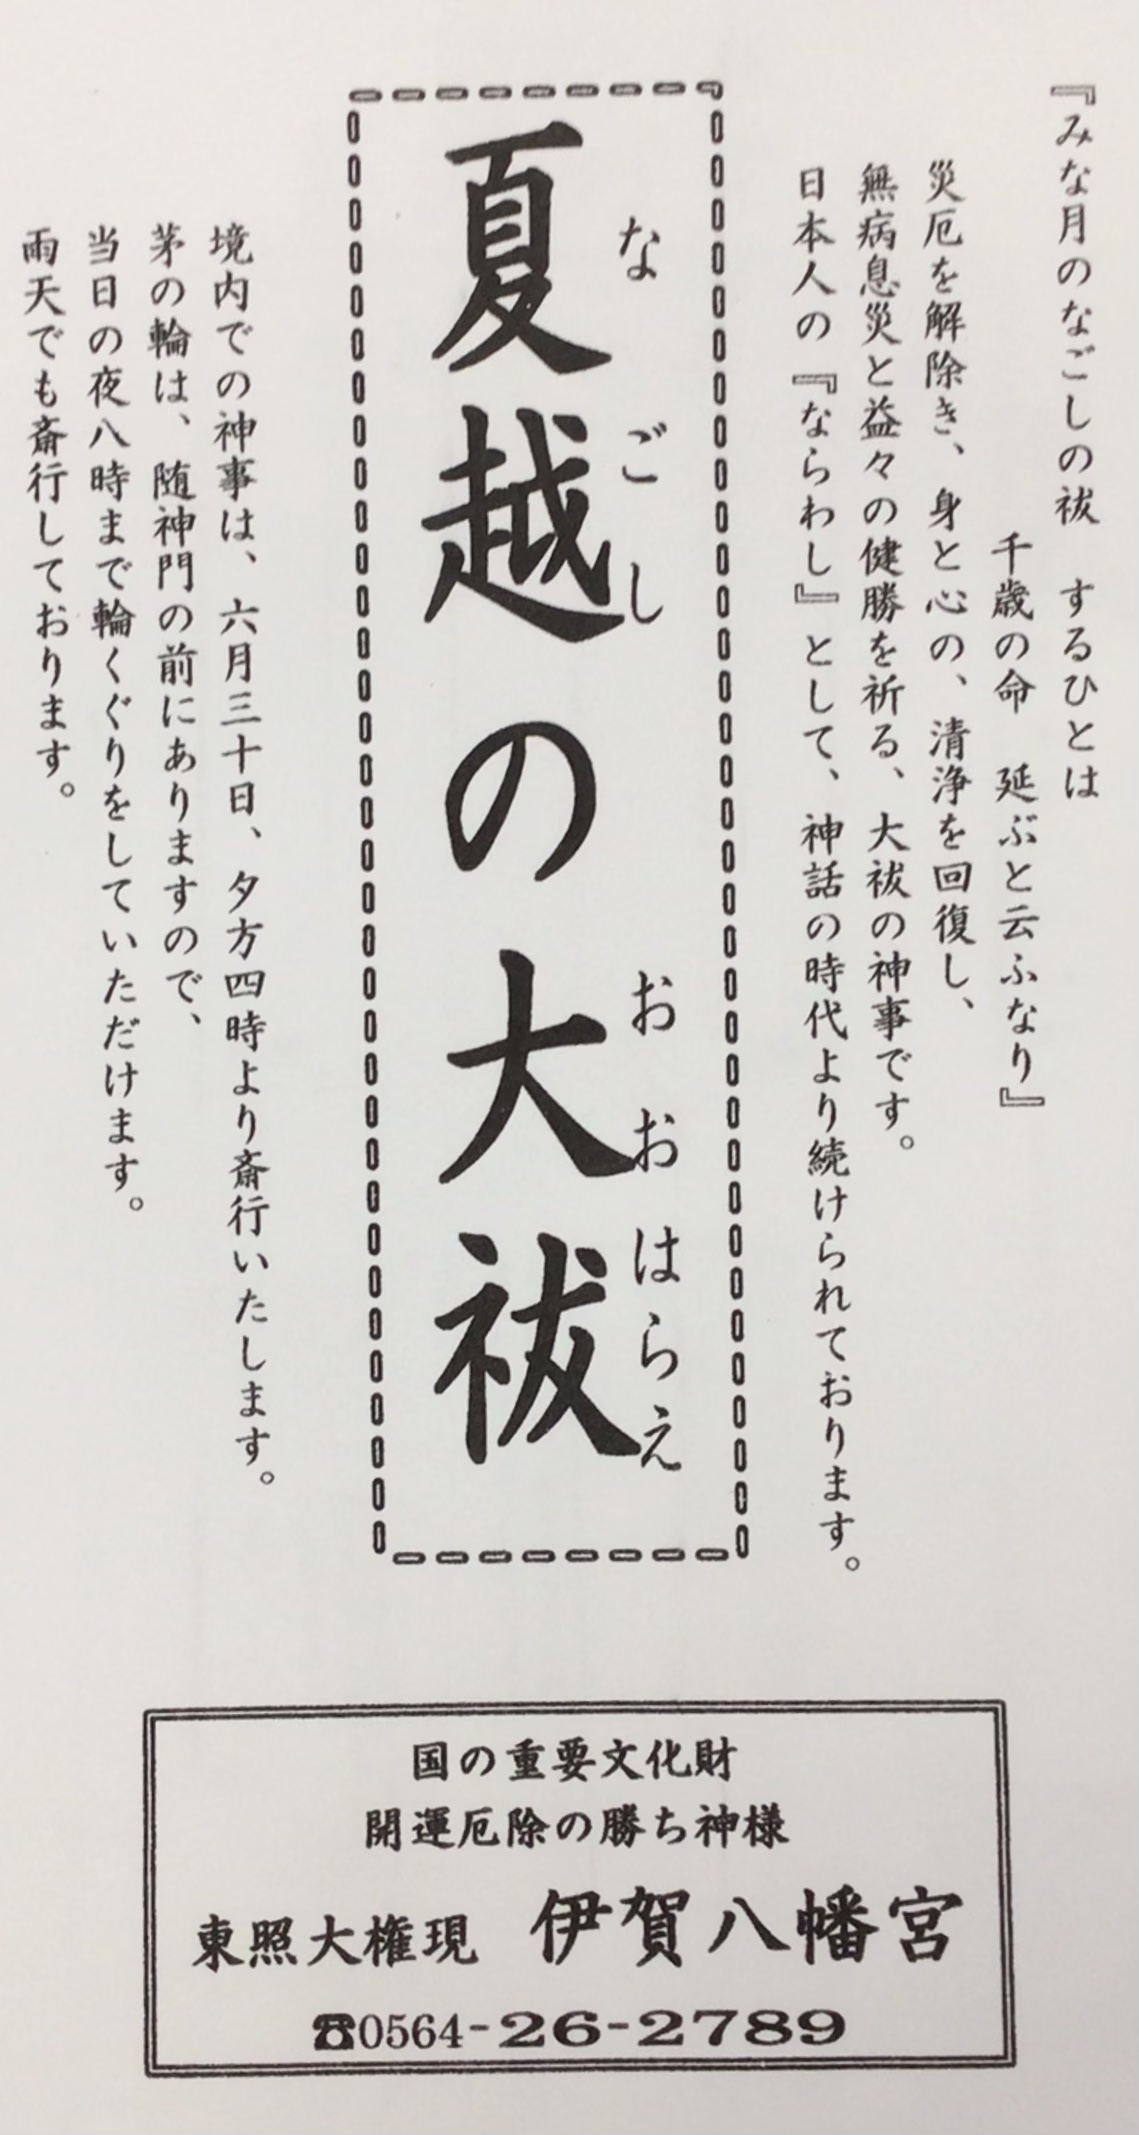 『みな月のなごしの祓　するひとは
千歳の命　延ぶと云ふなり』
災厄を解除き、身と心の、清浄を回復し、
無病息災と益々の健勝を祈る、大祓の神事です。
日本人の『ならわし』として、神話の時代より続けられております。
なごし　おおはらえ
夏越の大祓
境内での神事は、六月三十日、夕方四時より斎行いたします。
茅の輪は、随神門の前にありますので、
当日の夜八時まで輪くぐりをしていただけます。
雨天でも斎行しております。
国の重要文化財
開運厄除の勝ち神様
東照大権現　伊賀八幡宮
☎0564-26-2789